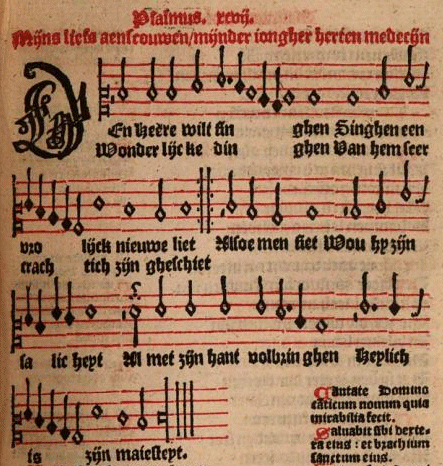 Psalmus. xcvij.
Mijns liefs aenscouwen/mijnder iongher herten medecijn
DEn heere wilt sin ghen Singhen een
Wonder lijc ke din ghen Van hem seer
vro lijck nieuwe liet Alsoe men siet Wou hy zijn
crach tich zijn gheschiet
sa lic heyt Al met zijn hant volbrin ghen Heylich
is zijn maiesteyt.
Cantate Domino
cāticum nouum quia
mirabilia fecit.
Saluabit sibi dexte-
ra eius : et brachium
sanctum eius.